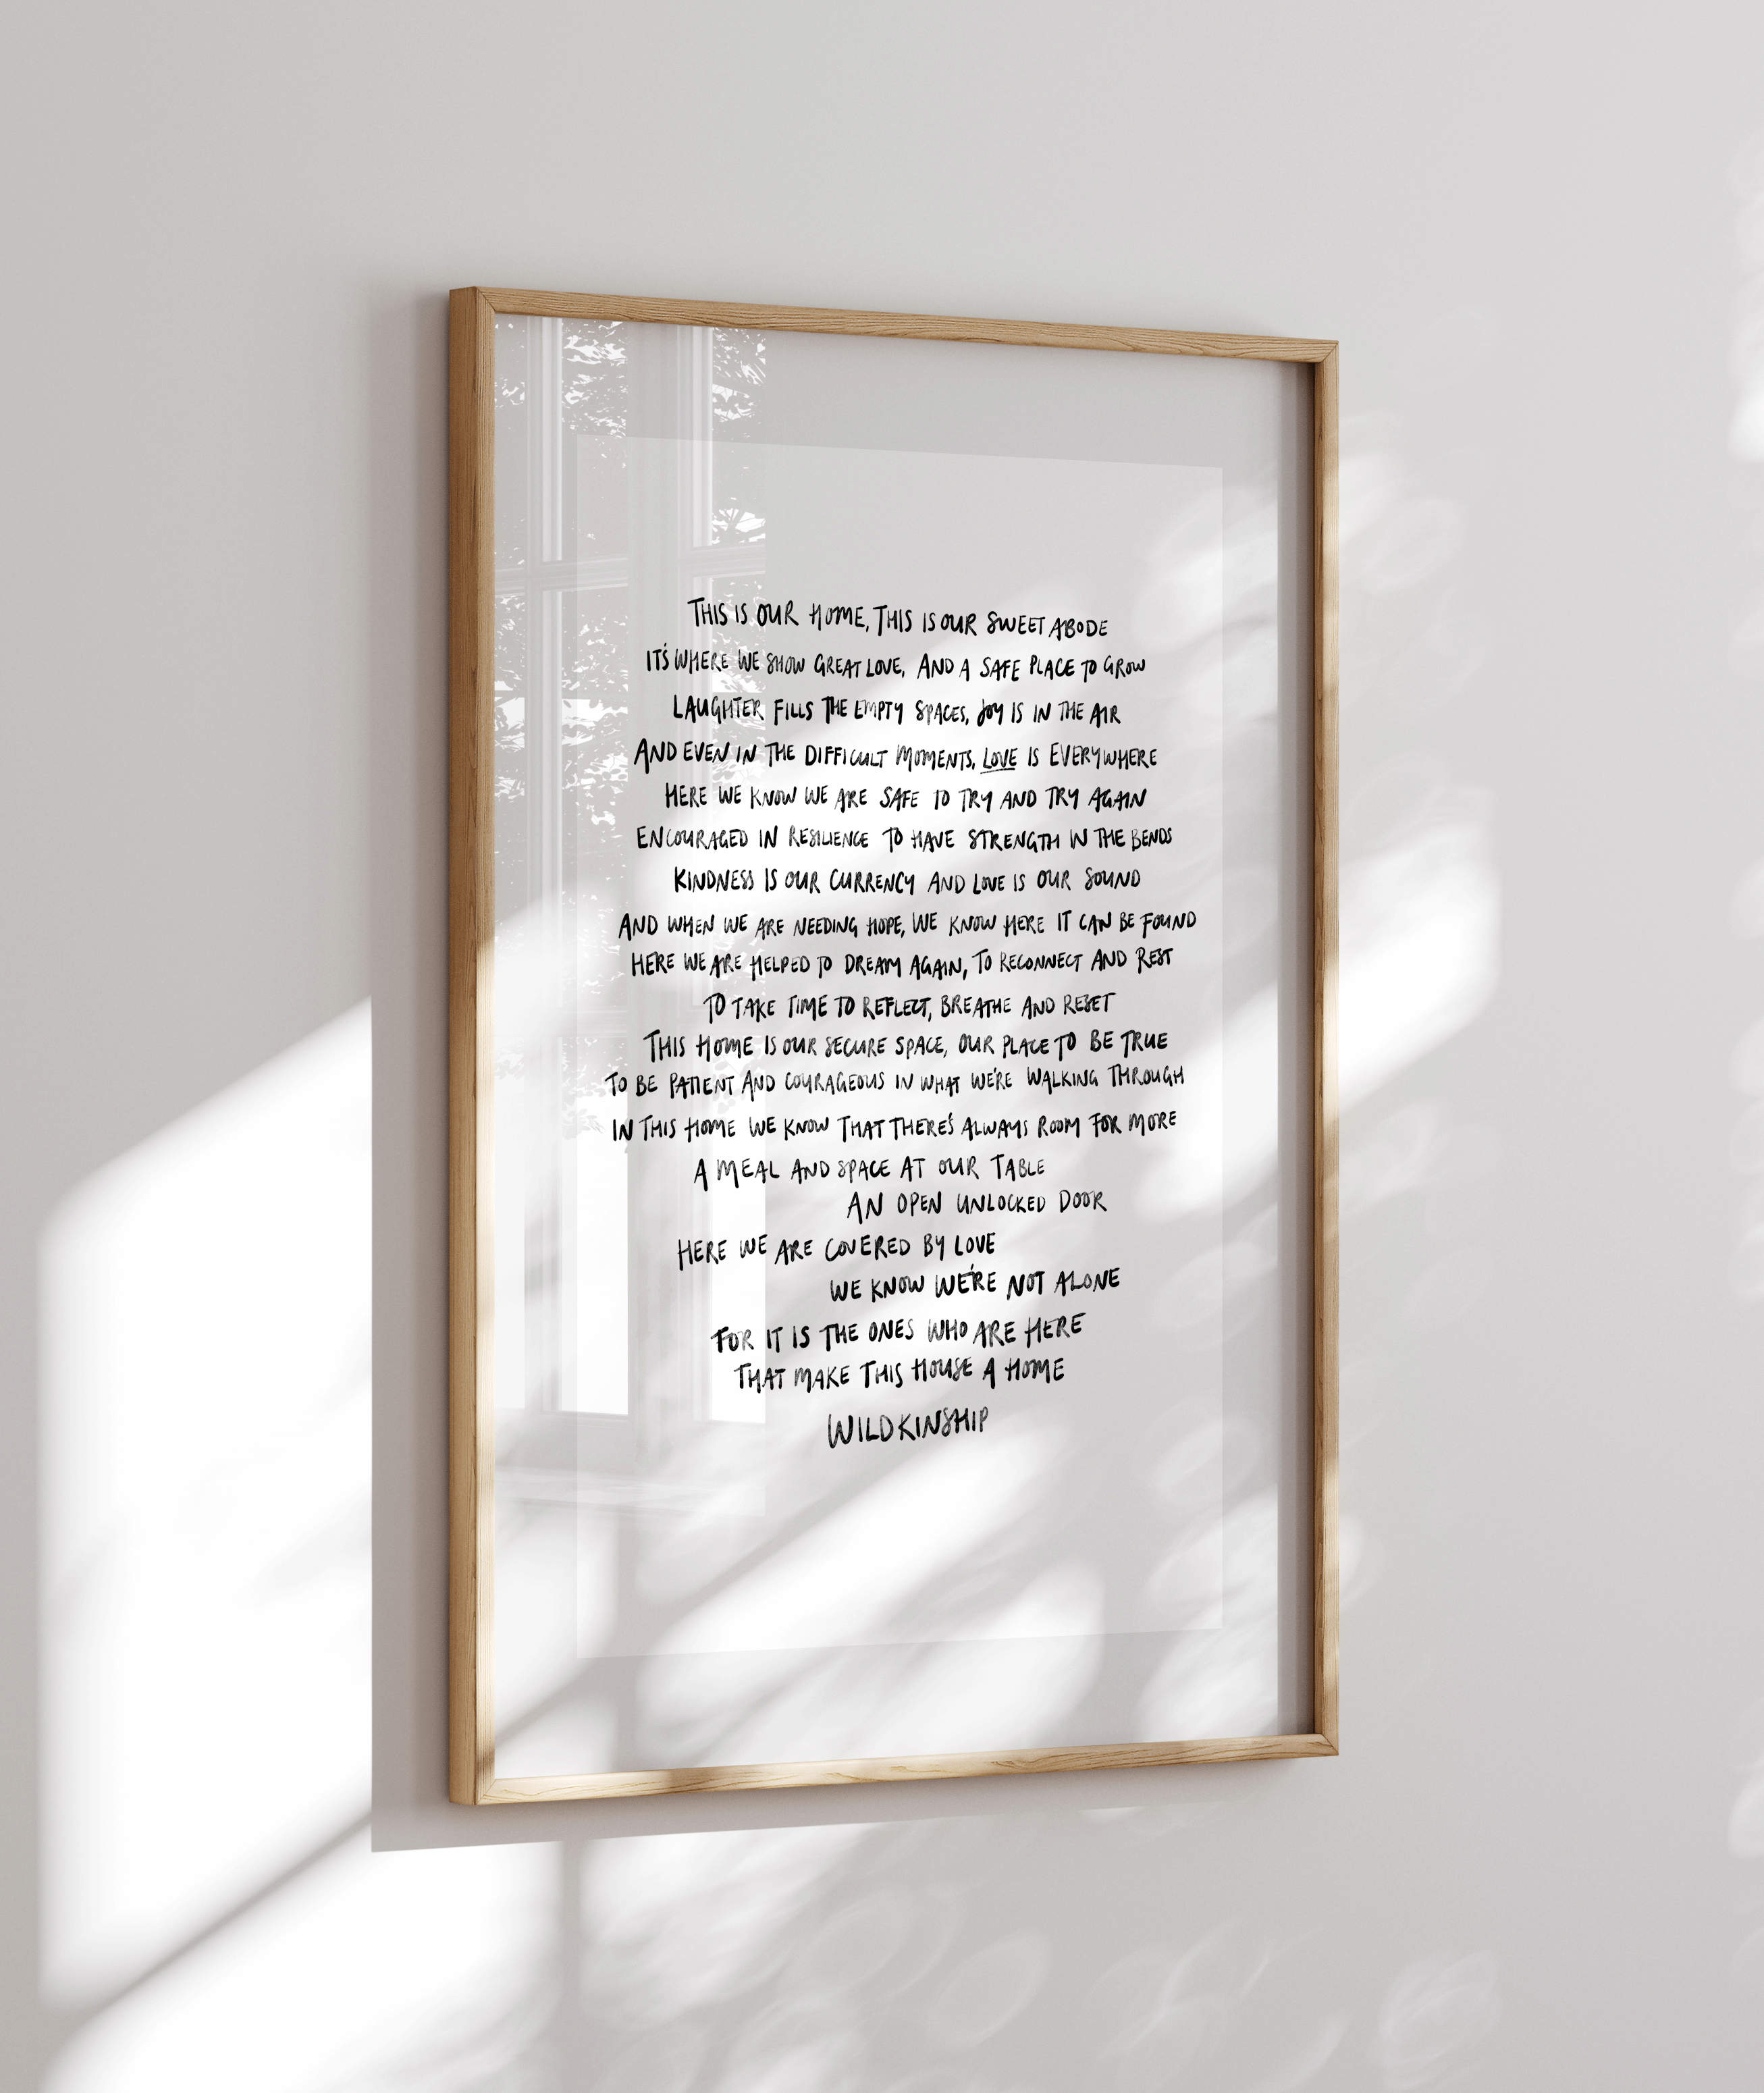 THIS IS OUR HOME, THIS IS OUR SWEET ABODE
IT'S WHERE WE SHOW GREAT LOVE, AND A SAFE PLACE TO GROW
LAUGHTER FILLS THE EMPTY SPACES, JOY IS IN THE AIR
AND EVEN IN THE DIFFICULT MOMENTS, LOVE IS EVERYWHERE
HERE WE KNOW WE ARE SAFE TO TRY AND TRY AGAIN
ENCOURAGED IN RESILIENCE TO HAVE STRENGTH IN THE BENDS
KINDNESS IS OUR CURRENCY AND LOVE IS OUR SOUND
AND WHEN WE ARE NEEDING HOPE, WE KNOW HERE IT CAN BE FOUND
HERE WE ARE HELPED TO DREAM AGAIN, TO RECONNECT AND REST
TO TAKE TIME TO REFLECT, BREATHE AND RESET
THIS HOME IS OUR SECURE SPACE, OUR PLACE TO BE TRUE
TO BE PATIENT AND COURAGEOUS IN WHAT WE'RE WALKING THROUGH
IN THIS HOME WE KNOW THAT THERE'S ALWAYS ROOM FOR MORE
A MEAL AND SPACE AT OUR TABLE
AN OPEN UNLOCKED DOOR
HERE WE ARE COVERED BY LOVE
WE KNOW WE'RE NOT ALONE
FOR IT IS THE ONES WHO ARE HERE
THAT MAKE THIS HOUSE A HOME
WILDKINSHIP